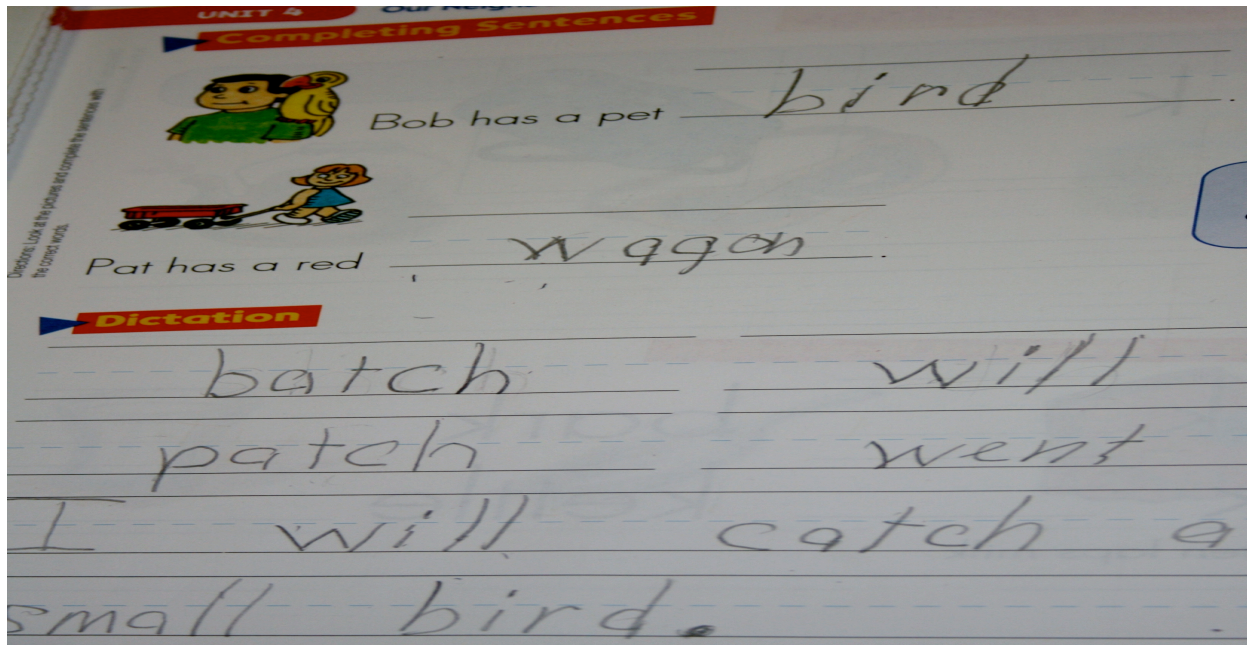 UNIT 4
Completing Sentences
Directions: Look at the pictures and complete the sentences with
the correct words.
Bob has a pet bird.
Pat has a red wagon.
Dictation
batch will
patch went
I will catch a
small bird.